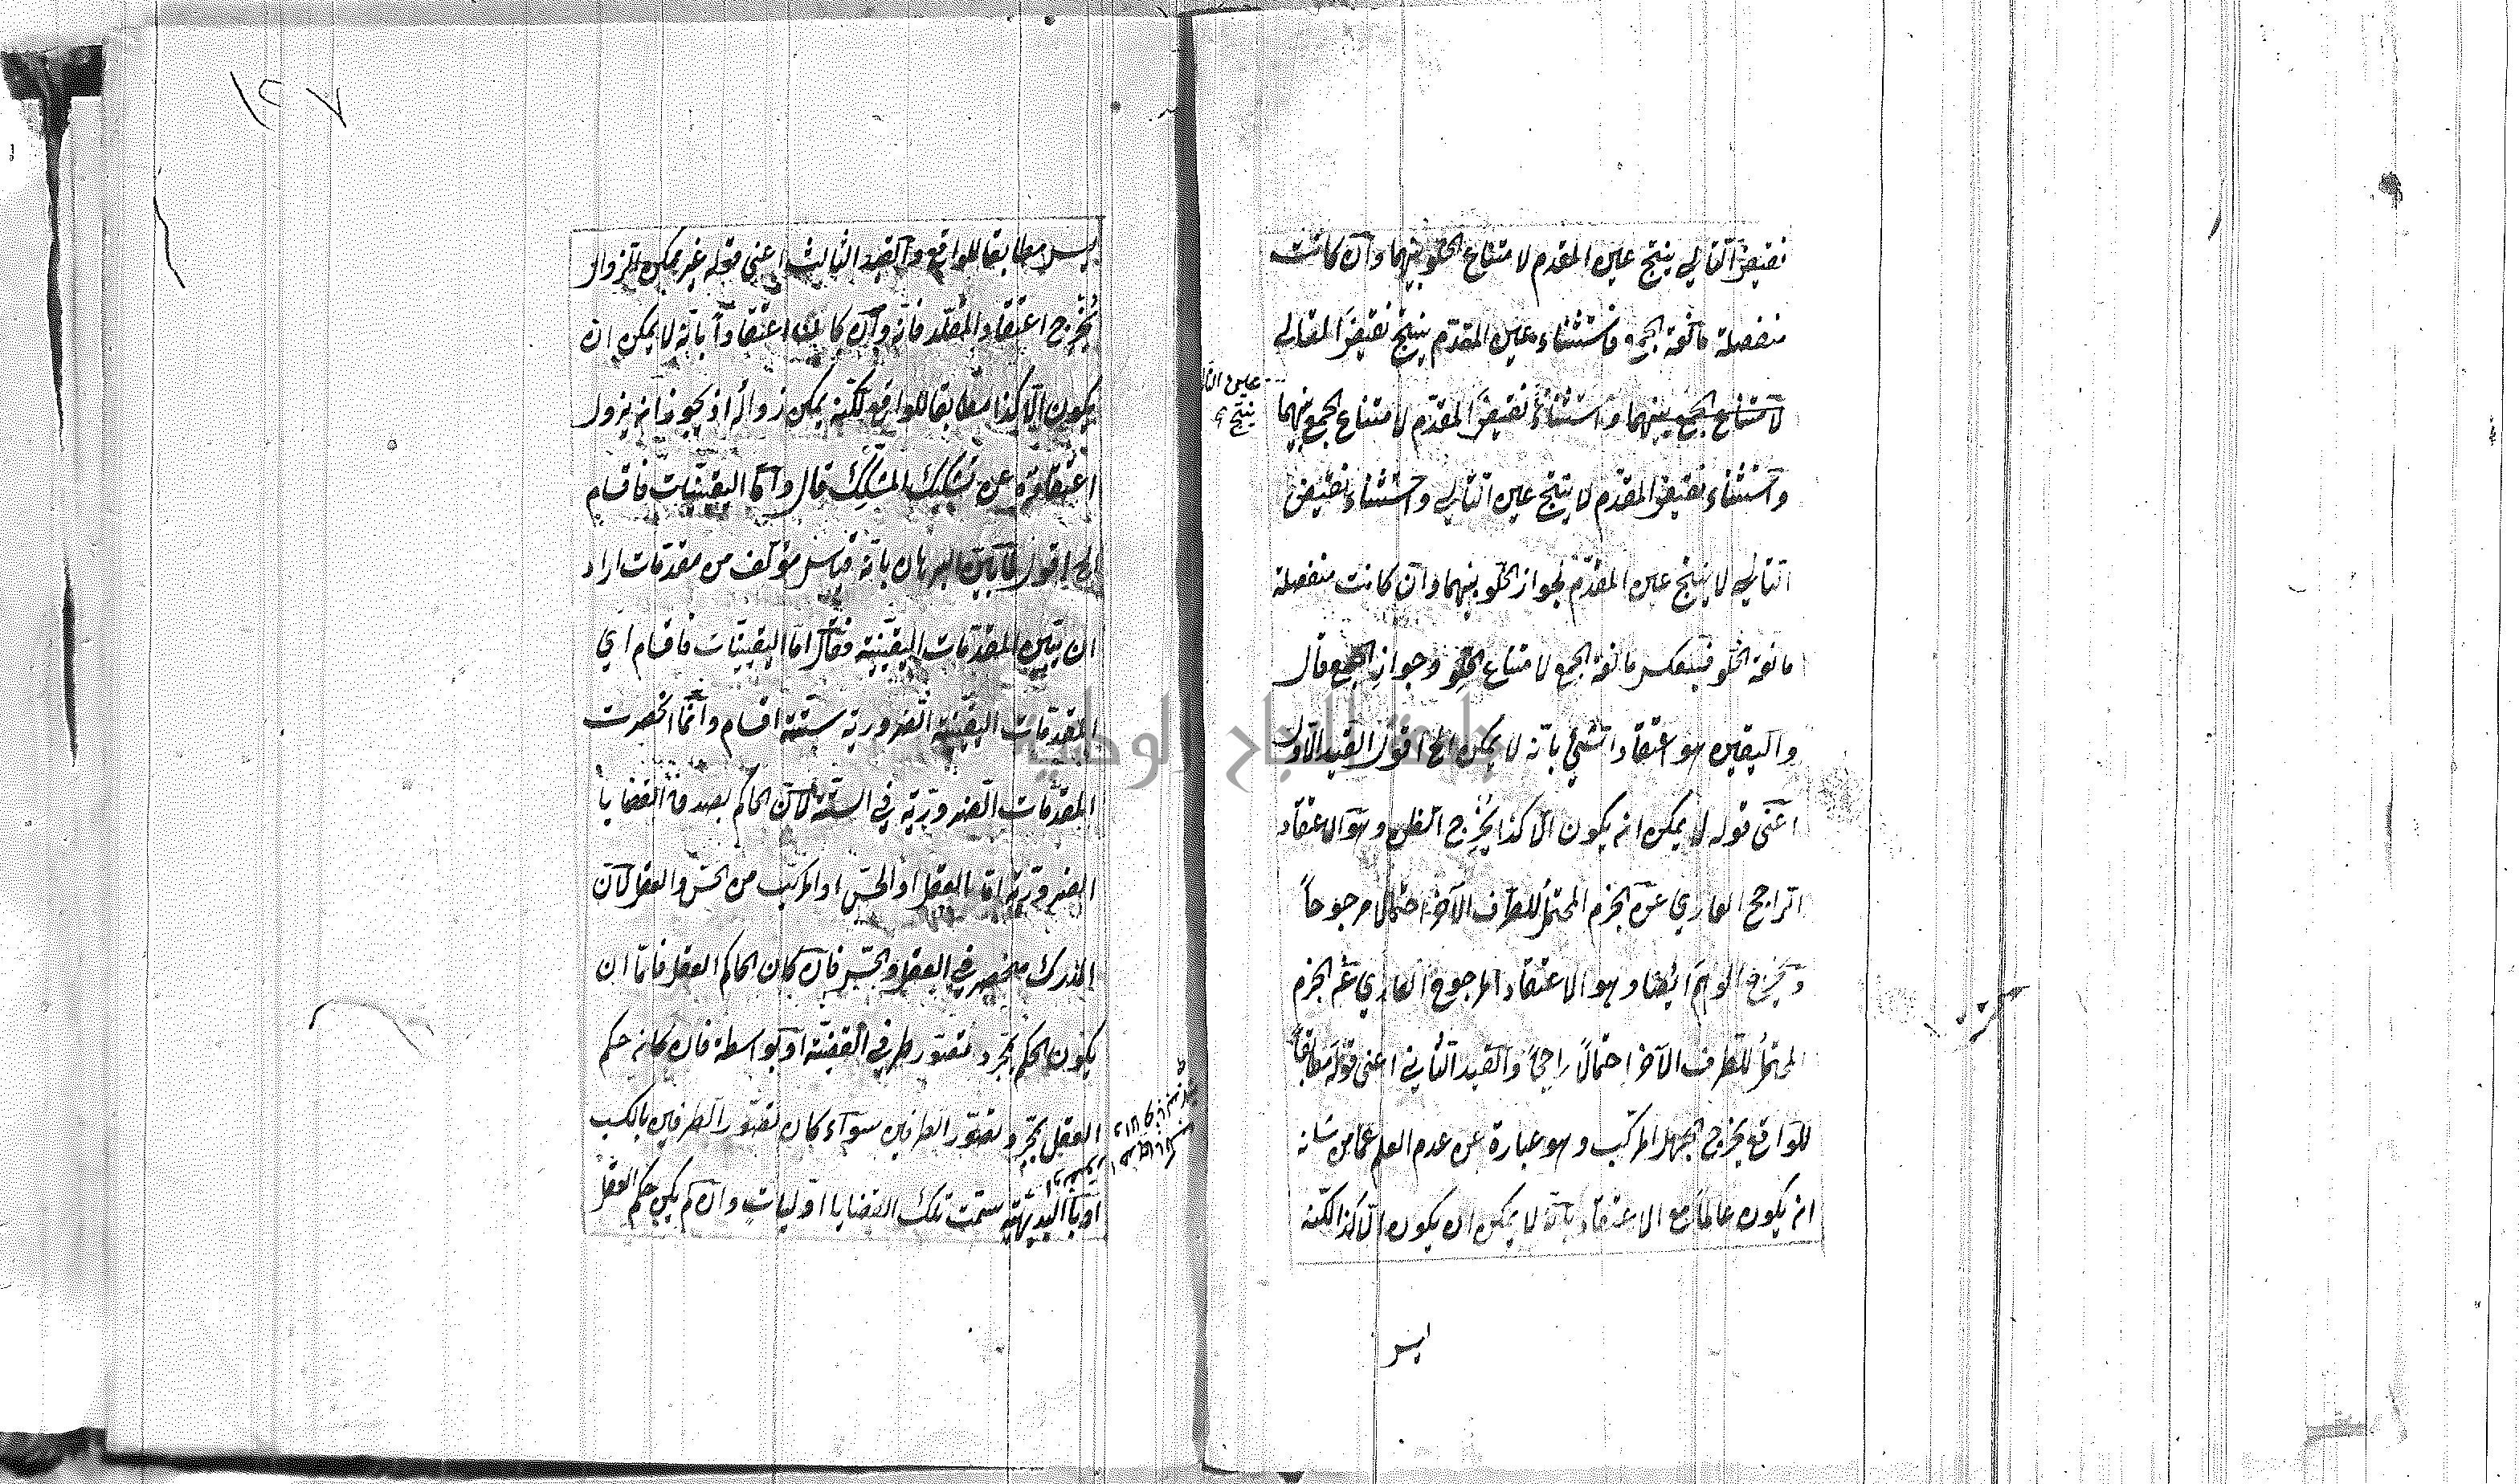 نقيض التالي ينتج عين المقدم لامتناع الخلو بينهما وان كانت
منفصلة مانعة الجمع فاستثناء عين المقدّم ينتج نقيض التالي
لامتناع الجمع بينهما واستثناء نقيض المقدّم لامتناع الجمع بينهما
عين التا
ينتج
واستثناء نقيض المقدم لا ينتج عين التالي واستثناء نقيض
التالي لا ينتج عين المقدّم لجواز الخلو بينهما وان كانت منفصلة
مانعة الخلو فبعكس مانعة الجمع لامتناع الخلو وجواز الجمع قال
واليقين هو اعتقاد الشيء بانّه لا يمكن الخ اقول القيد الاول
اعنى قوله لا يمكن انه يكون الّا كذا يُخْرج الظن وهو الاعتقاد
الراجح العاري عن الجزم المحتمل للطرف الآخر احتمالا مرجوحاً
ويخرج الوهم ايضا وهو الاعتقاد المرجوح العاري عن الجزم
المحتمل للطرف الآخر احتمالاً راجحاً والقيد الثاني اعنى قوله مطابقاً
للواقع يخرج الجهل المركّب وهو عبارة عن عدم العلم عمّا من شانه
انه يكون عالماً مع الاعتقاد بانّه لا يمكن ان يكون الّا كذا لكنّه
ليس
١٢٧
ليس مطابقا للواقع والقيد الثالث اعنى قوله غير ممكن الزوال
يُخْرج اعتقاد المقلّد فانّه وان كان اعتقاداً بانّه لا يمكن ان
يكون الّا كذا مطابقا للواقع لكنّه يمكن زواله اذ يجوز انه يزول
اعتقاده عن تشكيك المشكّك قال وامّا اليقينيّات فاقسام
الخ اقول لمّا بيّن البرهان بانّه قياس مؤلّف من مقدّمات اراد
ان يبيّن المقدّمات اليقينيّة فقال امّا اليقينيّات فاقسام اي
المقدّمات اليقينيّة الضرورية ستّة اقسام وانّما انحصرت
المقدّمات الضروريّة في الستّة لانّ الحاكم بصدق القضايا
الضروريّة امّا العقل او الحسّ او المركّب من الحسّ والعقل لانّ
المدرك منحصر في العقل والحسّ فان كان الحاكم العقل فامّا ان
يكون الحكم بمجرّد تصوّر طرفي القضيّة او بواسطة فان كانه حكم
العقل بمجرّد تصوّر الطرفين سوآء كان تصوّر الطرفين بالكسب
او بالبديهيّة سمّيت تلك القضايا اوّليات وان لم يكن حكم العقل